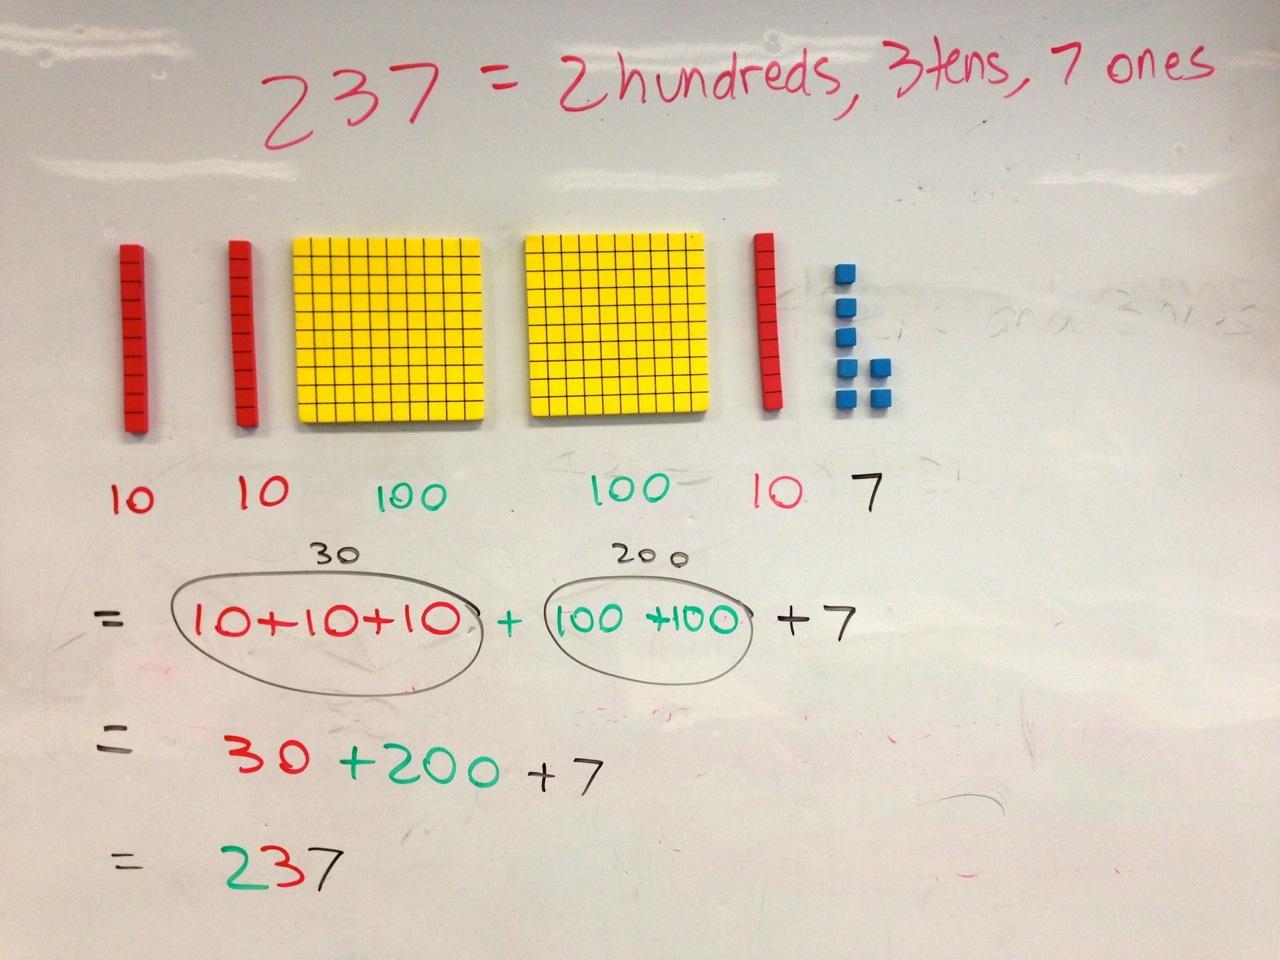 237 = 2 hundreds, 3 tens, 7 ones
10 10 100 100 10 7
30 200
= 10+10+10 + 100 +100 + 7
= 30 +200 +7
= 237